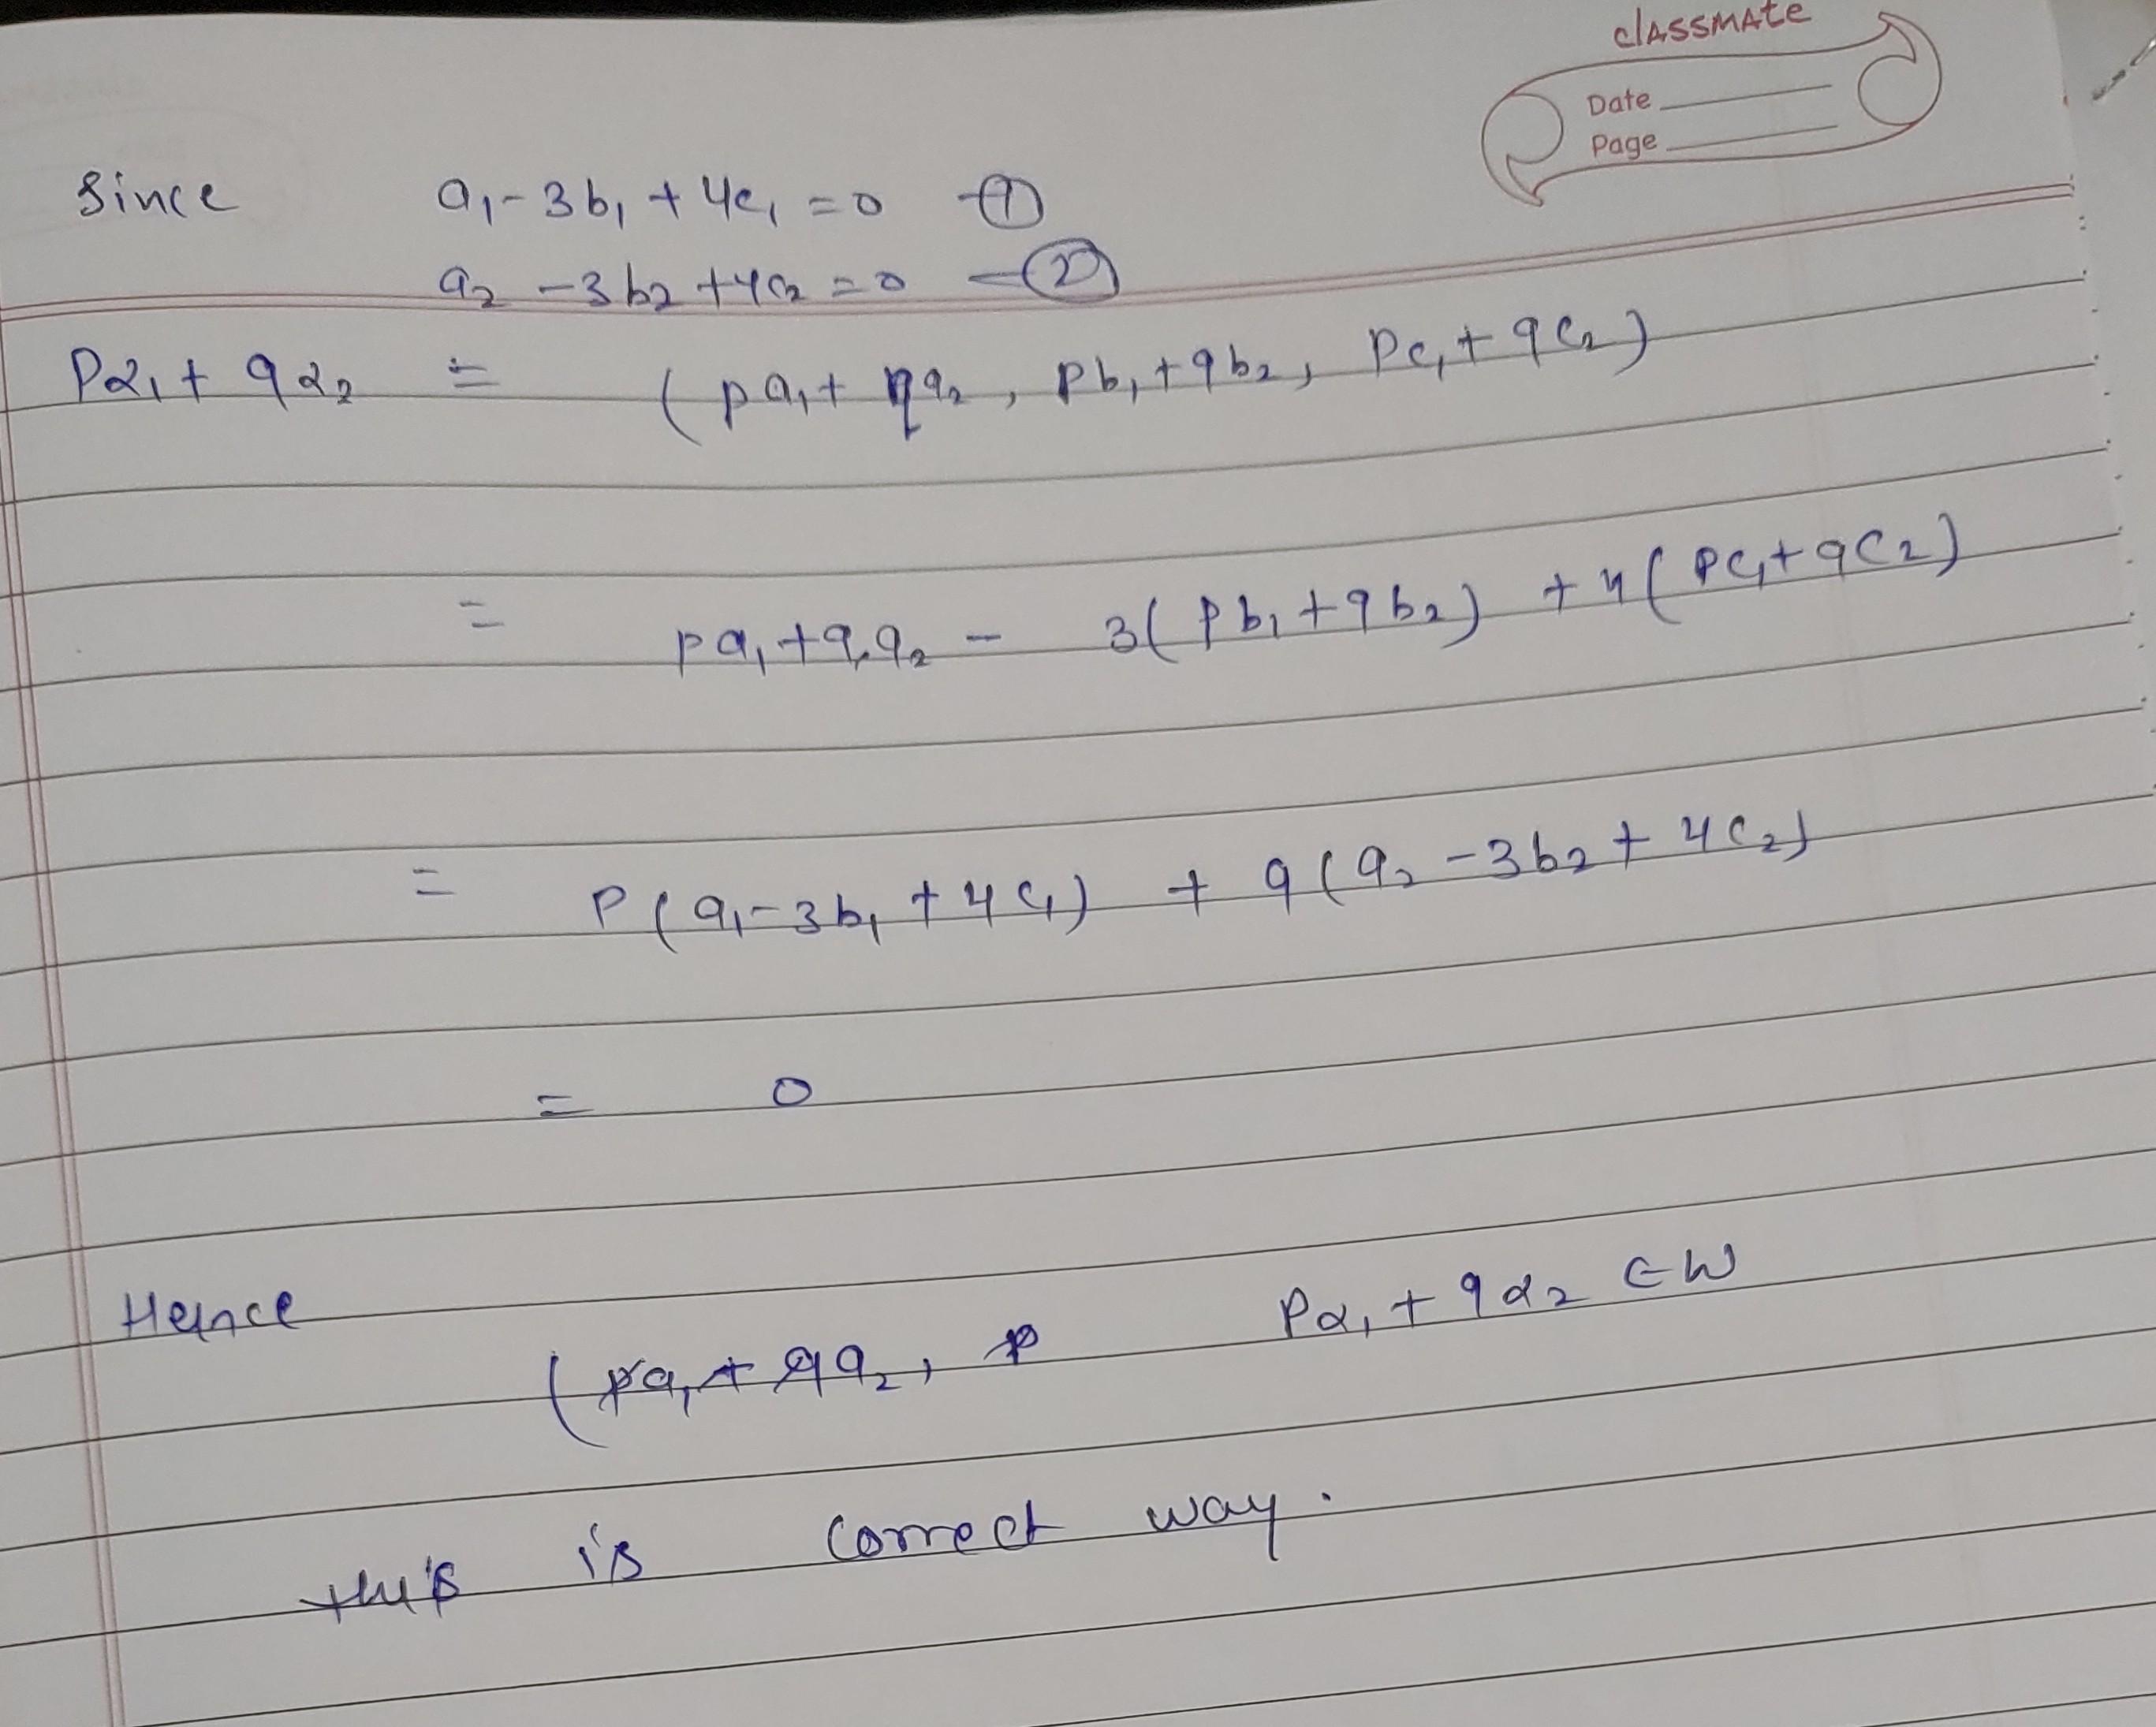 classmate
Date
Page
Since a₁ - 3b₁ + 4c₁ = 0 — ①
a₂ - 3b₂ + 4c₂ = 0 — ②
pα₁ + qα₂ = (pa₁ + qa₂, pb₁ + qb₂, pc₁ + qc₂)
= pa₁ + qa₂ - 3(pb₁ + qb₂) + 4(pc₁ + qc₂)
= p(a₁ - 3b₁ + 4c₁) + q(a₂ - 3b₂ + 4c₂)
= 0
Hence (pa₁ + qa₂, p pα₁ + qα₂ ∈ W
this is correct way.